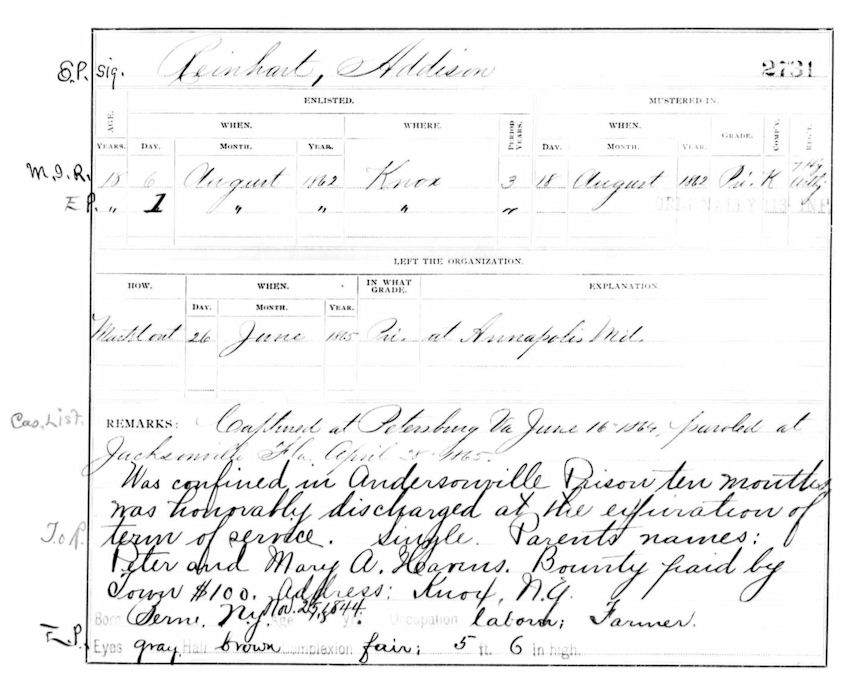 S.P. Sig. Reinhart, Addison 2731
ENLISTED. MUSTERED IN.
AGE. WHEN. WHERE. PERIOD YEARS. WHEN. GRADE. COMP'Y. REG'T.
YEARS. DAY. MONTH. YEAR. DAY. MONTH. YEAR.
M.I.R. 18 6 August 1862 Knox 3 18 August 1862 Pri. K 7 Hy Arty
E.P. " 1 " " " " ORIGINALLY 113 INF
LEFT THE ORGANIZATION.
HOW. WHEN. IN WHAT GRADE. EXPLANATION.
DAY. MONTH. YEAR.
Must out 26 June 1865 Pri. at Annapolis Md.
Cas. List. REMARKS: Captured at Petersburg Va June 16-1864, paroled at
Jacksonville Fla. April 28-1865.
Was confined in Andersonville Prison ten months
was honorably discharged at the expiration of
T.o R. term of service. Single. Parents names:
Peter and Mary A. Bounty paid by
Town $100. Address: Knox, N.Y.
Born Berne, N.Y. Nov. 25, 1844. Age yr. Occupation laborn; Farmer.
E.P. Eyes gray Hair brown Complexion fair; 5 ft. 6 in high.